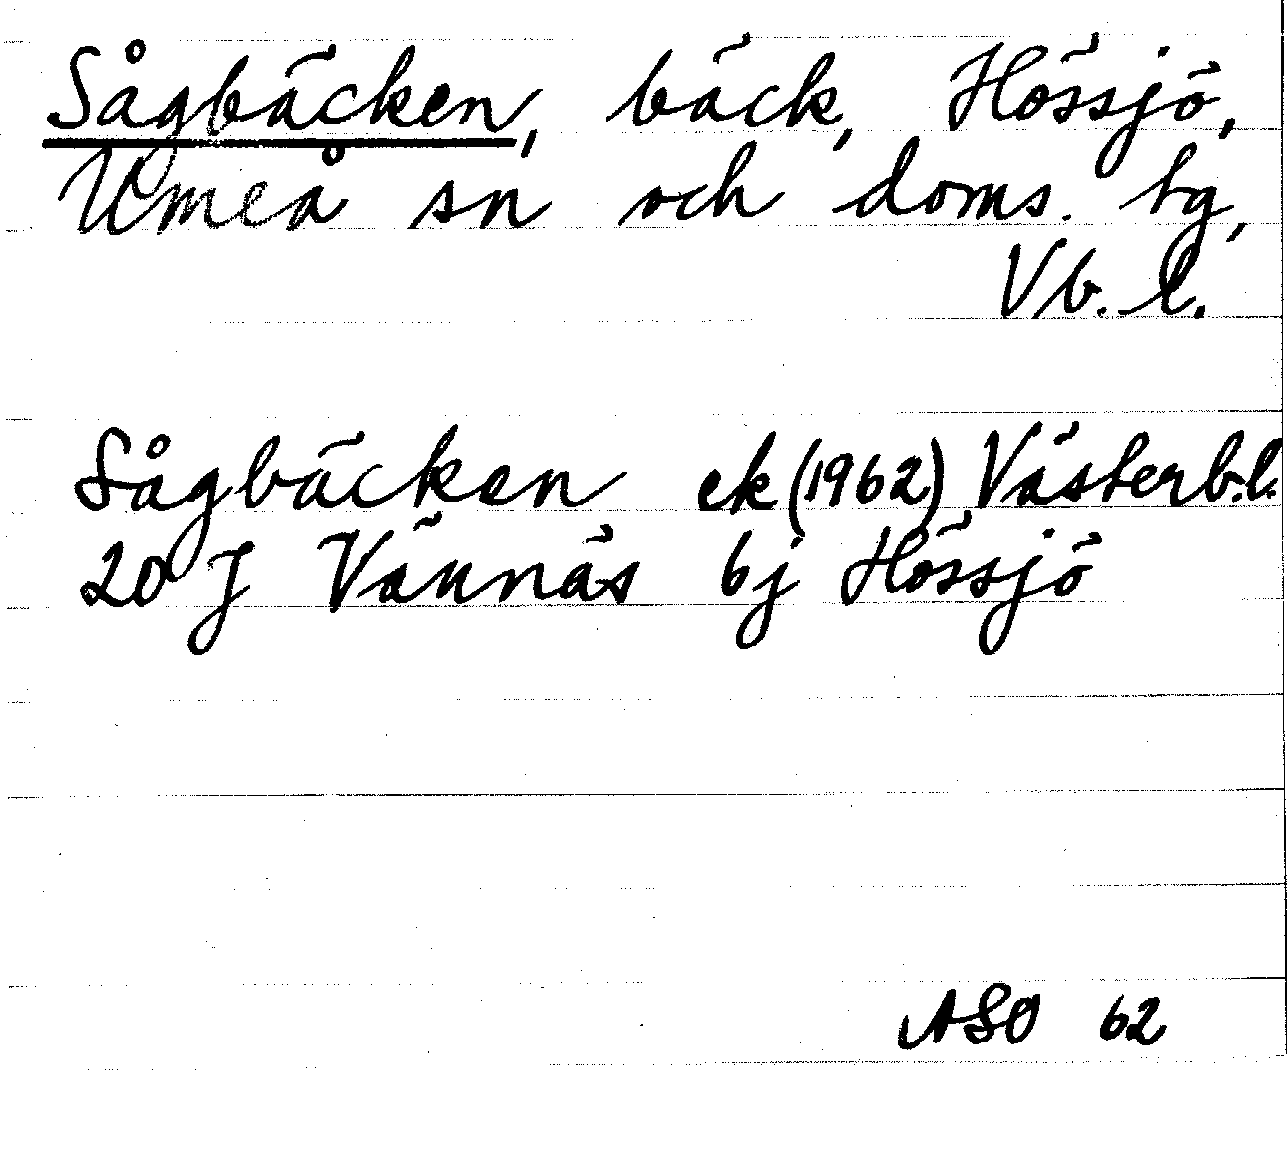 Sågbäcken, bäck, Hössjö,
Umeå sn och doms. hg,
Vb. l.
Sågbäcken ek (1962) Västerb.l.
20 J Vännäs bj Hössjö
ASO 62